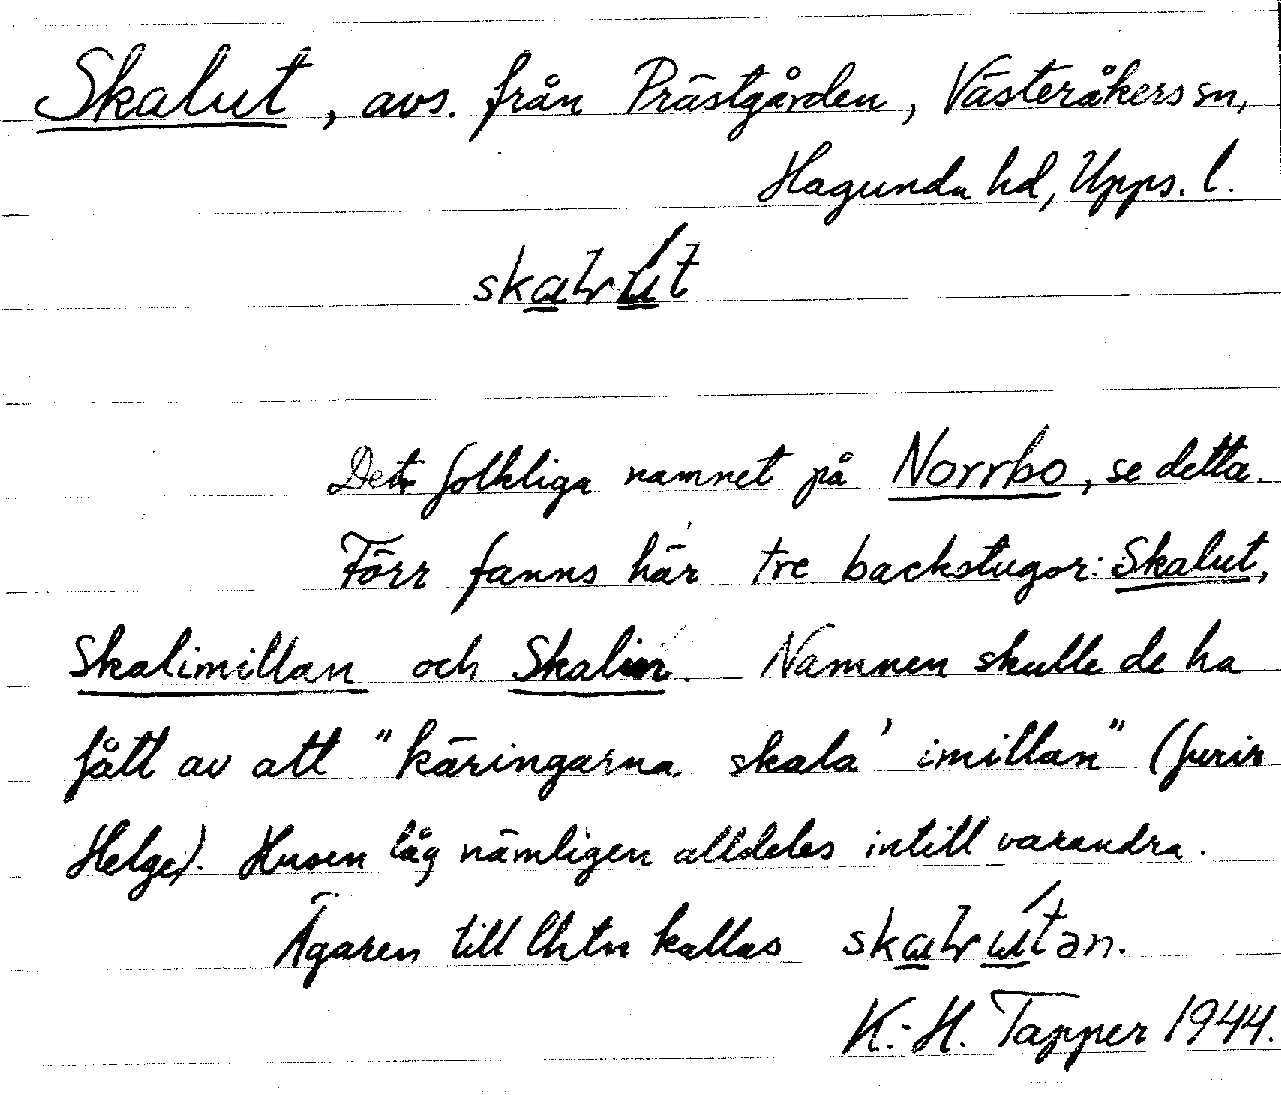 Skalut, avs. från Prästgården, Västeråkers sn,
Hagunda hd, Upps. l.
Det folkliga namnet på Norrbo, se detta.
Förr fanns här tre backstugor: Skalut,
Skalimillan och Skalin. Namnen skulle de ha
fått av att "käringarna skala' imillan" (furir
Helge). Husen låg nämligen alldeles intill varandra.
Ägaren till lhtn kallas
K.-H. Tapper 1944.